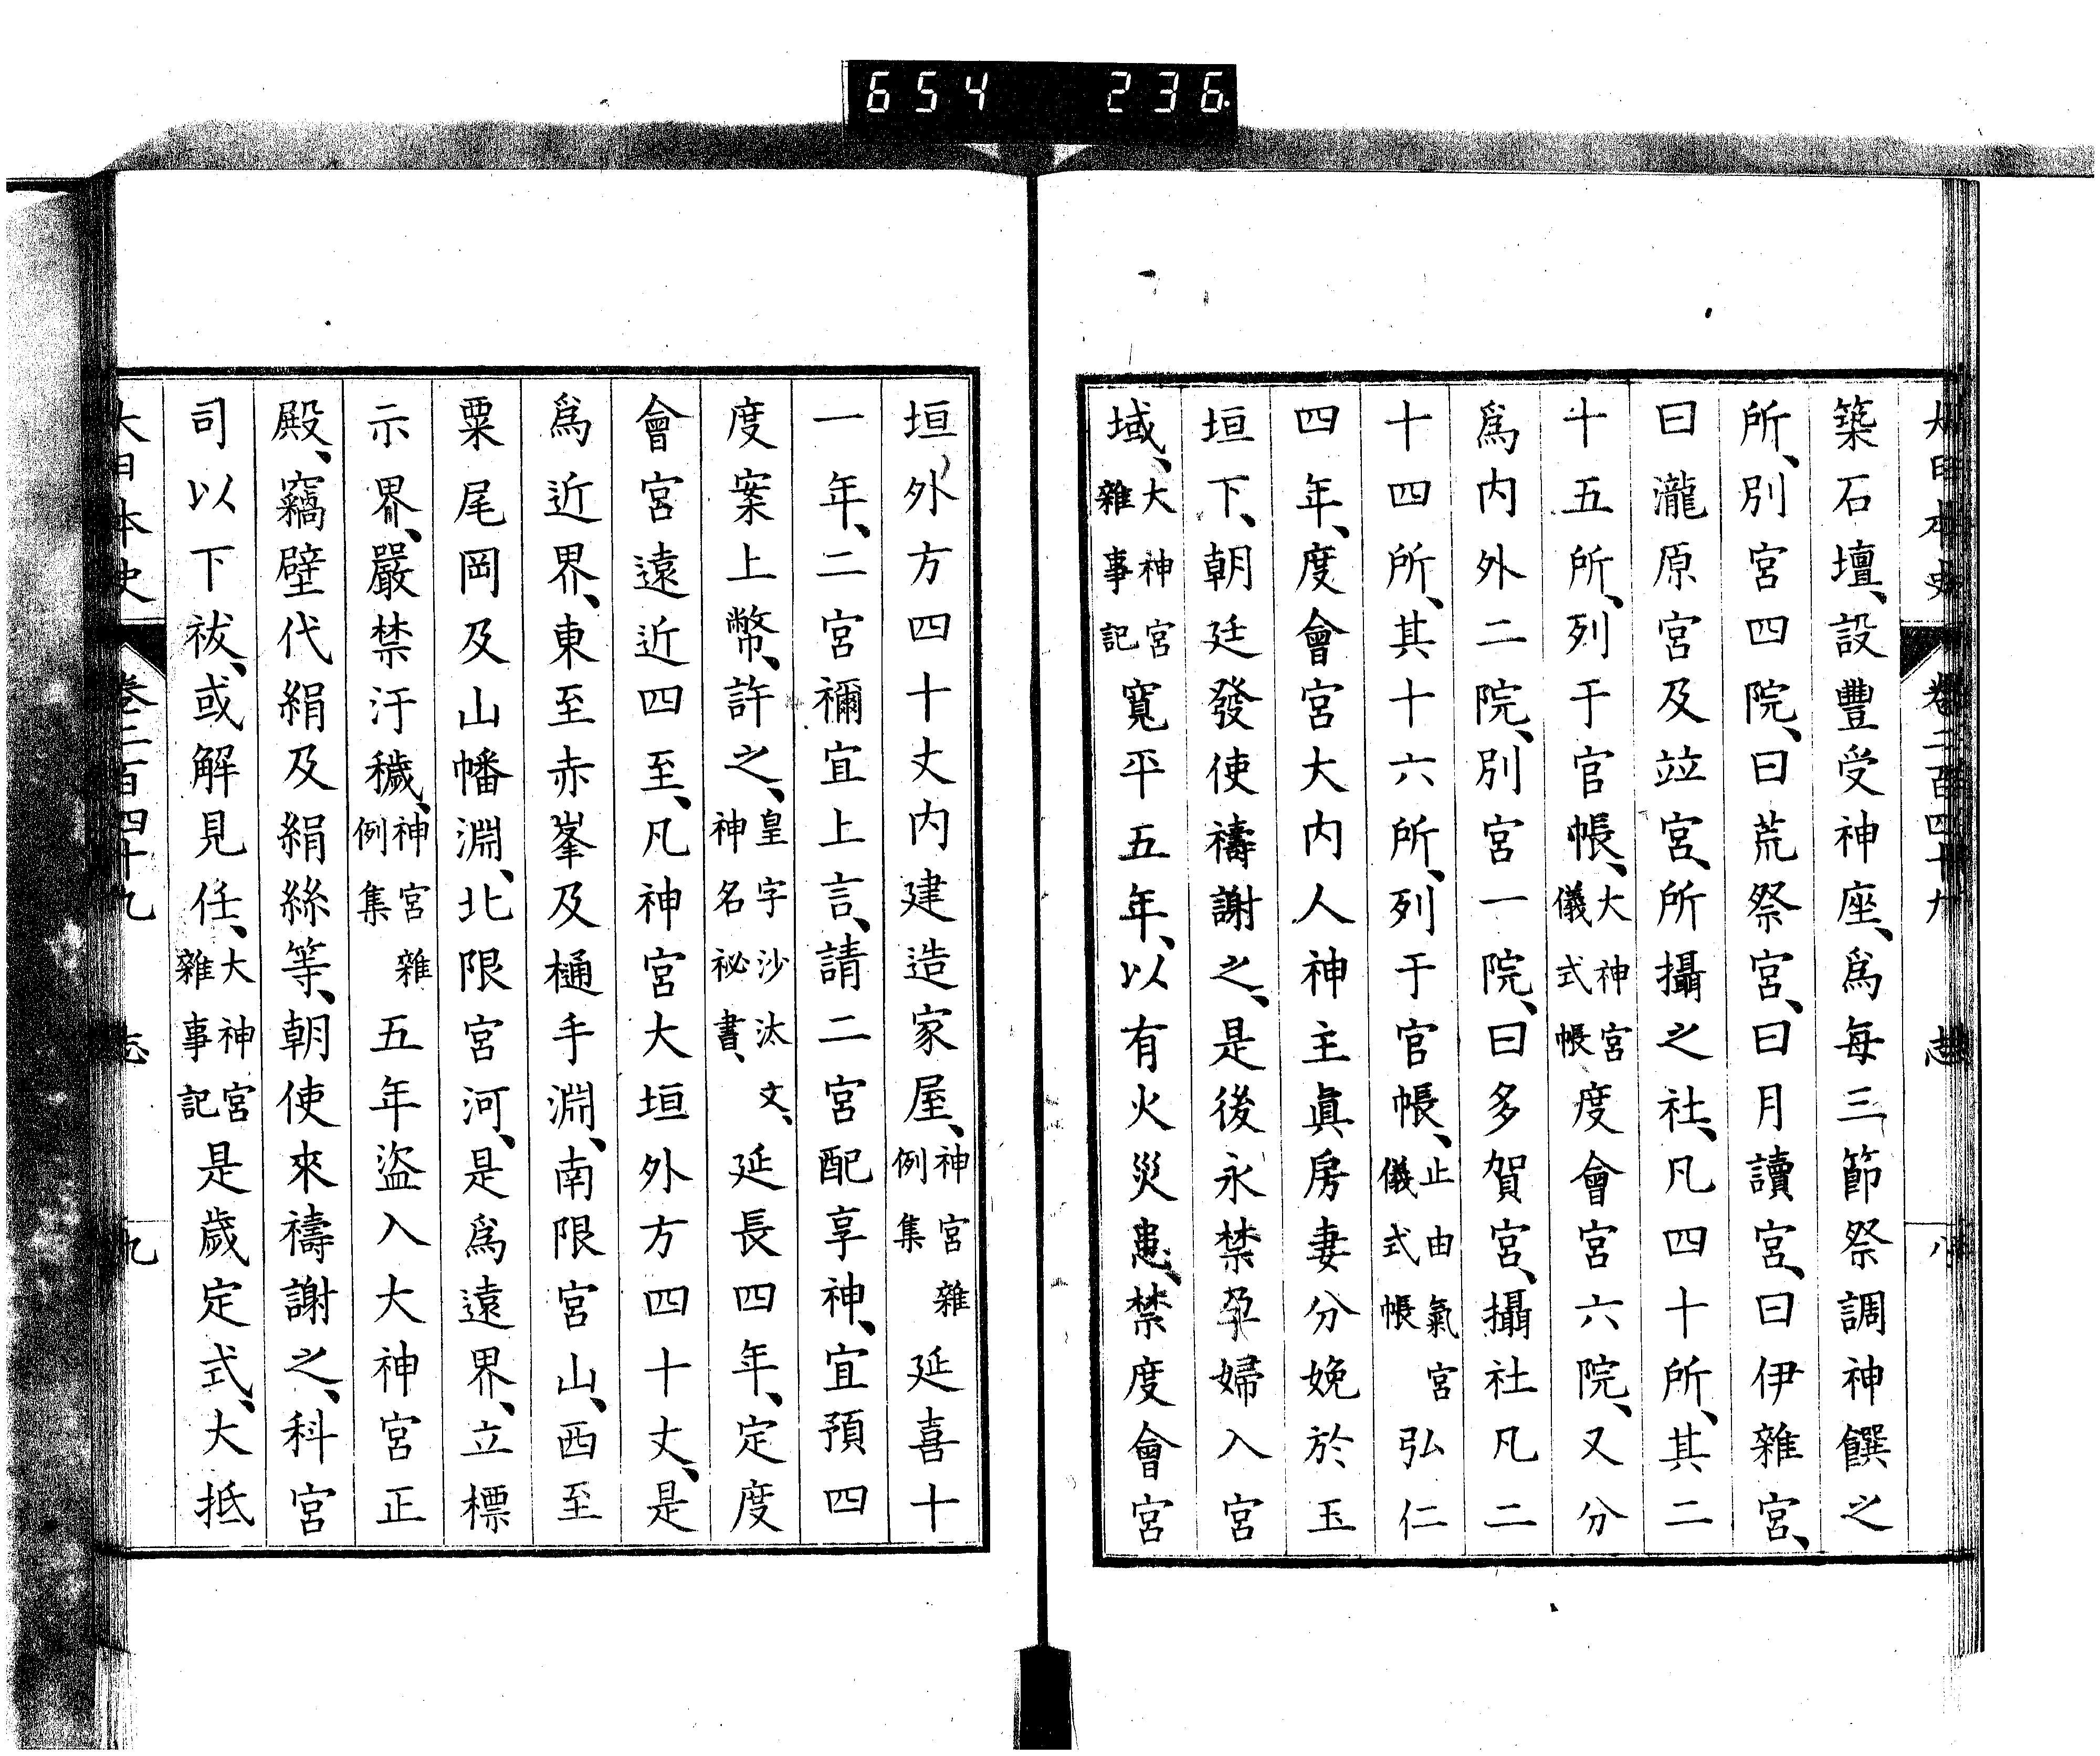 654 236
大日本史 卷二百四十九 志 八
築石壇、設豐受神座、爲每三節祭調神饌之
所、別宮四院、曰荒祭宮、曰月讀宮、曰伊雜宮、
曰瀧原宮及竝宮、所攝之社、凡四十所、其二
十五所、列于官帳、大神宮儀式帳度會宮六院、又分
爲内外二院、別宮一院、曰多賀宮、攝社凡二
十四所、其十六所、列于官帳、止由氣宮儀式帳弘仁
四年、度會宮大内人神主眞房妻分娩於玉
垣下、朝廷發使禱謝之、是後永禁孕婦入宮
域、大神宮雜事記寬平五年、以有火災患、禁度會宮
垣外方四十丈内建造家屋、神宮雜例集延喜十
一年、二宮禰宜上言、請二宮配享神、宜預四
度案上幣、許之、皇字沙汰文、神名祕書、延長四年、定度
會宮遠近四至、凡神宮大垣外方四十丈、是
爲近界、東至赤峯及樋手淵、南限宮山、西至
粟尾岡及山幡淵、北限宮河、是爲遠界、立標
示界、嚴禁汙穢、神宮雜例集五年盜入大神宮正
殿、竊壁代絹及絹絲等、朝使來禱謝之、科宮
司以下祓、或解見任、大神宮雜事記是歲定式、大抵
大日本史 卷二百四十九 志 九